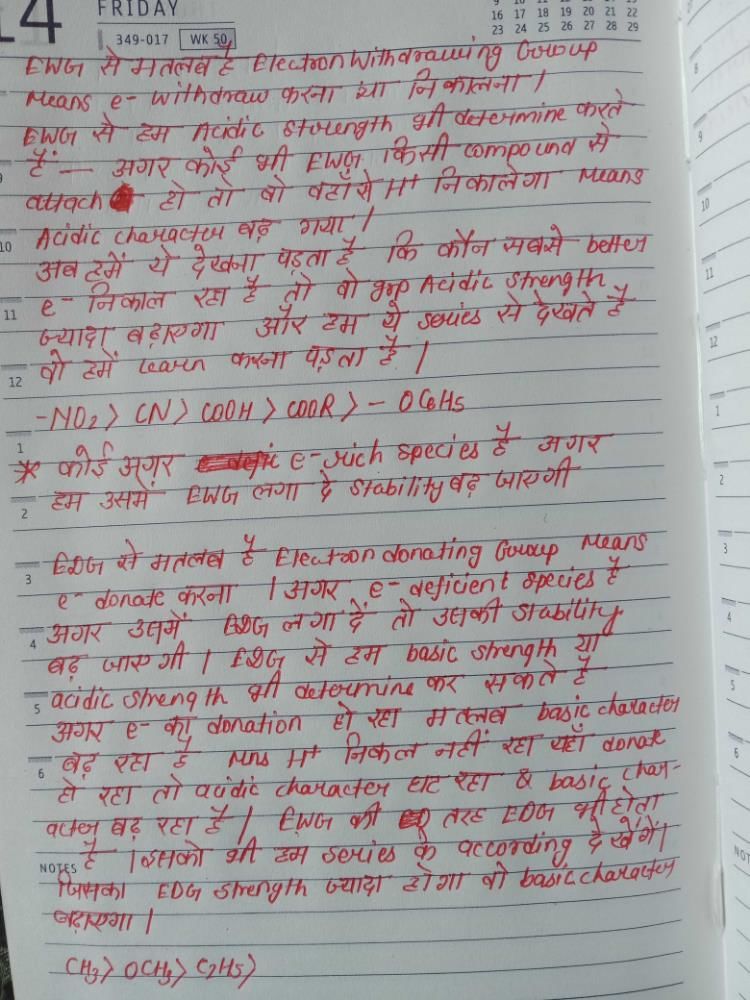 14
FRIDAY
349-017 WK 50
9 10 11 12 13 14 15
16 17 18 19 20 21 22
23 24 25 26 27 28 29
EWG से मतलब है Electron Withdrawing Group
Means e- withdraw करना या निकालना।
EWG से हम Acidic strength भी determine करते
हैं — अगर कोई भी EWG किसी compound से
attach हो तो वो वहाँ से H+ निकालेगा Means
Acidic character बढ़ गया।
अब हमें ये देखना पड़ता है कि कौन सबसे better
e- निकाल रहा है तो वो grp Acidic strength
ज्यादा बढ़ाएगा और हम ये series से देखते है
वो हमें learn करना पड़ता है।
-NO2 > CN > COOH > COOR > - OC6H5
* कोई अगर e-rich species है अगर
हम उसमें EWG लगा दे stability बढ़ जाएगी
EDG से मतलब है Electron donating Group Means
e- donate करना । अगर e- deficient species है
अगर उसमें EDG लगा दें तो उसकी stability
बढ़ जाएगी। EDG से हम basic strength या
acidic strength भी determine कर सकते है
अगर e- का donation हो रहा मतलब basic character
बढ़ रहा है Mns H+ निकल नहीं रहा यहाँ donate
हो रहा तो acidic character घट रहा & basic char-
acter बढ़ रहा है। EWG की तरह EDG भी होता
है । इसको भी हम series के according देखेंगें।
NOTES
जिसका EDG strength ज्यादा होगा वो basic character
बढ़ाएगा।
CH3 > OCH3 > C2H5 >